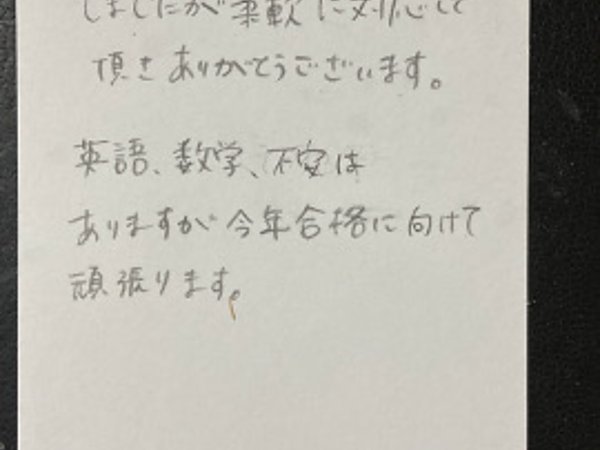 しましたが柔軟に対応して
頂きありがとうございます。
英語、数学、不安は
ありますが今年合格に向けて
頑張ります。